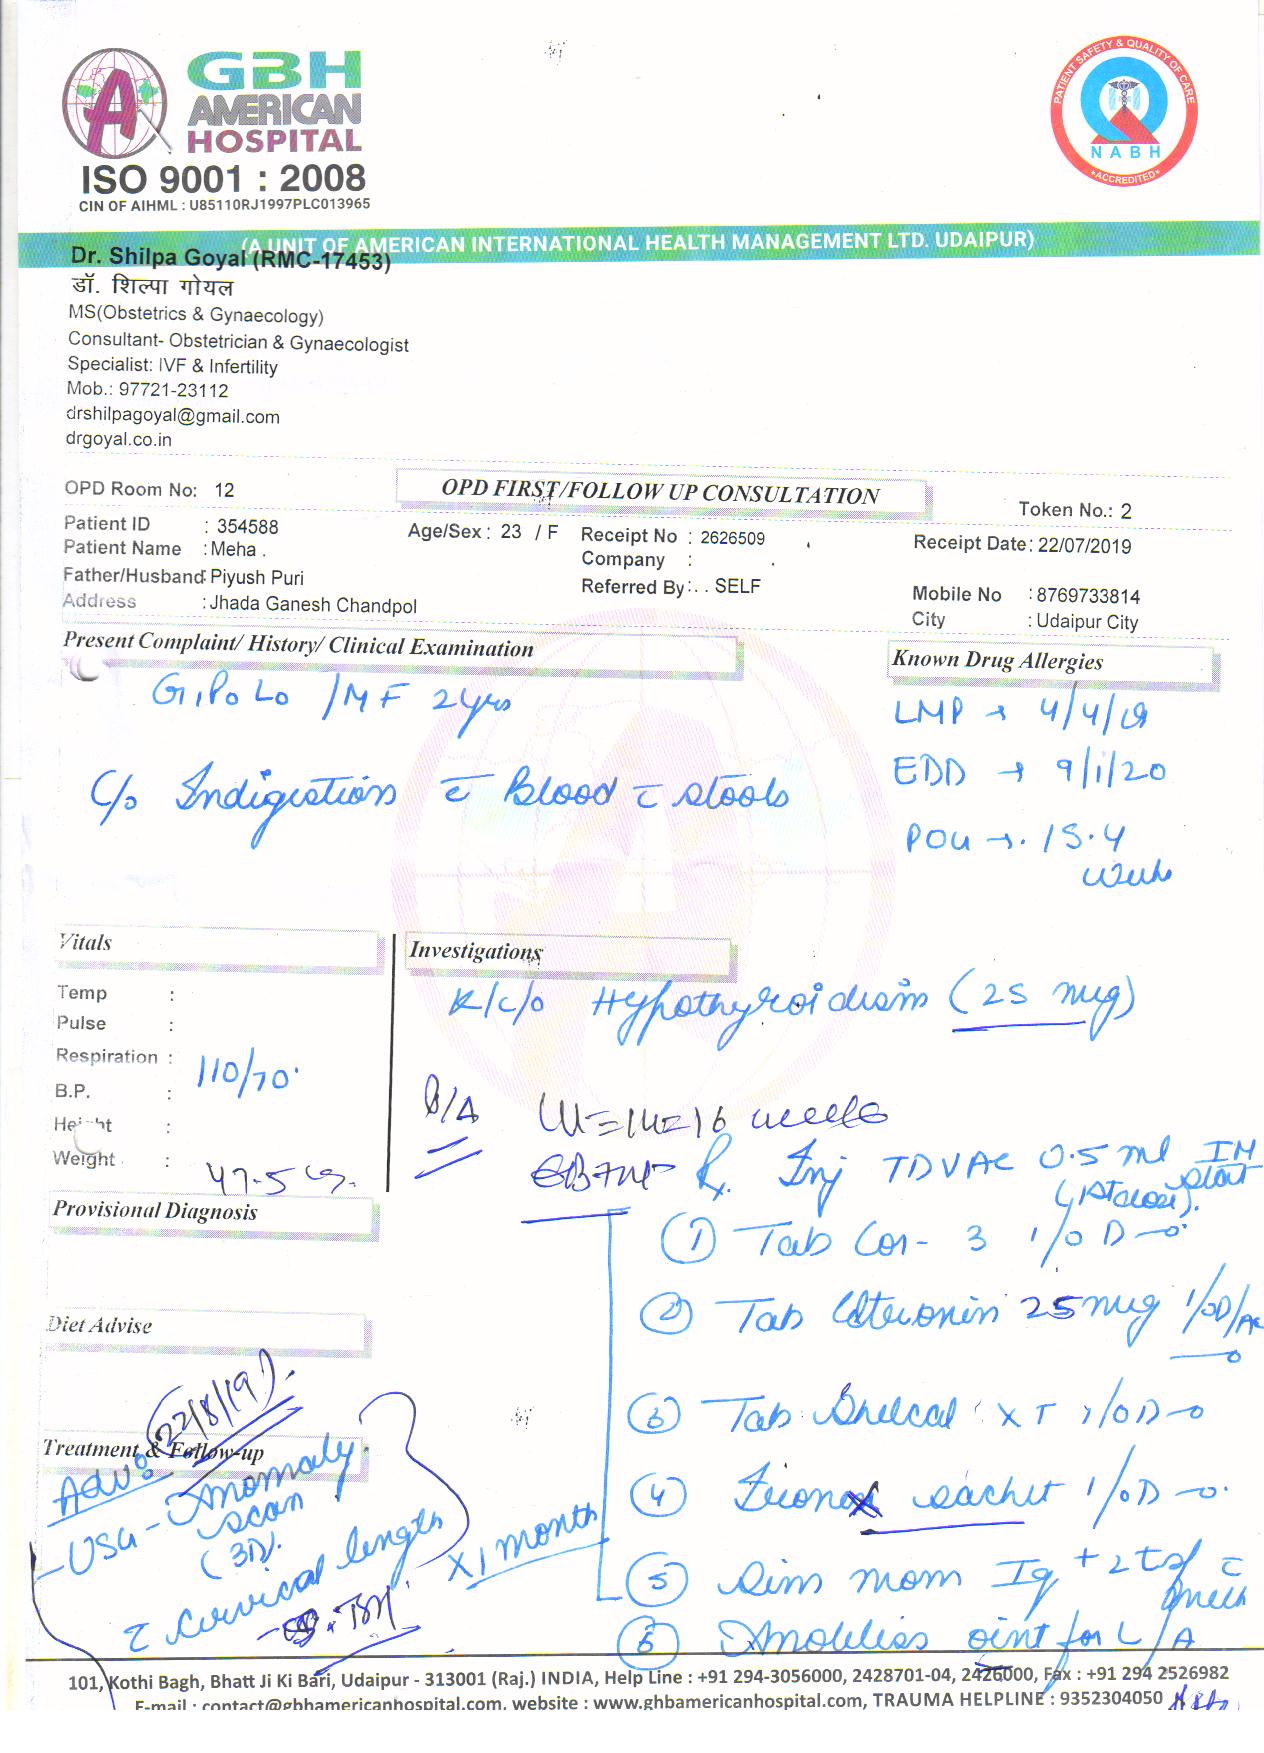 GBH
AMERICAN
HOSPITAL
ISO 9001 : 2008
CIN OF AIHML : U85110RJ1997PLC013965
PATIENT SAFETY & QUALITY OF CARE
NABH
ACCREDITED
(A UNIT OF AMERICAN INTERNATIONAL HEALTH MANAGEMENT LTD. UDAIPUR)
Dr. Shilpa Goyal (RMC-17453)
डॉ. शिल्पा गोयल
MS(Obstetrics & Gynaecology)
Consultant- Obstetrician & Gynaecologist
Specialist: IVF & Infertility
Mob.: 97721-23112
drshilpagoyal@gmail.com
drgoyal.co.in
OPD Room No: 12
OPD FIRST/FOLLOW UP CONSULTATION
Token No.: 2
Patient ID : 354588 Age/Sex : 23 / F Receipt No : 2626509 Receipt Date: 22/07/2019
Patient Name : Meha . Company :
Father/Husband: Piyush Puri Referred By: . . SELF Mobile No : 8769733814
Address : Jhada Ganesh Chandpol City : Udaipur City
Present Complaint/ History/ Clinical Examination
Known Drug Allergies
G1P0L0 / MF 2 yrs
LMP → 4/4/19
EDD → 9/1/20
C/o Indigestion c̄ Blood c̄ stools
POG → 15.4
weeks
Vitals
Investigations
Temp :
Pulse :
Respiration :
B.P. : 110/70
Height :
Weight : 47.5 kg.
K/c/o Hypothyroidism (25 mcg)
14-16 weeks
Rx. Inj TDVAC 0.5 ml IM stat
(1st dose).
Provisional Diagnosis
① Tab Cor-3 1/OD
② Tab 25 mcg 1/OD/AC
Diet Advise
③ Tab Shelcal XT 1/OD
22/8/19
Treatment & Follow-up
④ sachet 1/OD
Adv:
- USG - Anomaly
scan
(3D).
c̄ cervical length
x 1 month
⑤ Sim mom + 2 tsf c̄
milk
⑥ Anobliss oint for L/A
101, Kothi Bagh, Bhatt Ji Ki Bari, Udaipur - 313001 (Raj.) INDIA, Help Line : +91 294-3056000, 2428701-04, 2426000, Fax : +91 294 2526982
E-mail : contact@gbhamericanhospital.com, website : www.ghbamericanhospital.com, TRAUMA HELPLINE : 9352304050